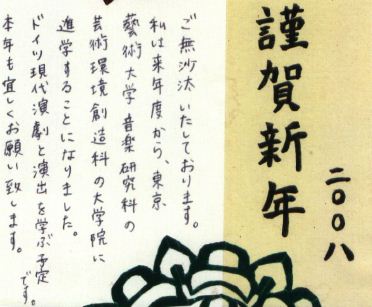 謹賀新年
二〇〇八
ご無沙汰いたしております。
私は来年度から、東京
藝術大学音楽研究科の
芸術環境創造科の大学院に
進学することになりました。
ドイツ現代演劇と演出を学ぶ予定
です。
本年も宜しくお願い致します。